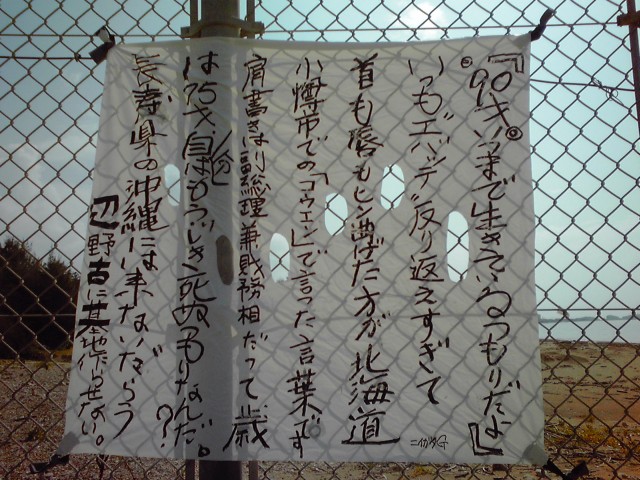 『90才いつまで生きているつもりだよ』
いつもエバッテ反り返えすぎて
首も唇もヒン曲げた方が北海道
小樽市での「コウエン」で言った言葉です
肩書きは副総理兼財務相だって歳
は75才自分はもうじき死ぬつもりなんだ。
長寿県の沖縄には来ないだろう?
辺野古に基地作らせない。